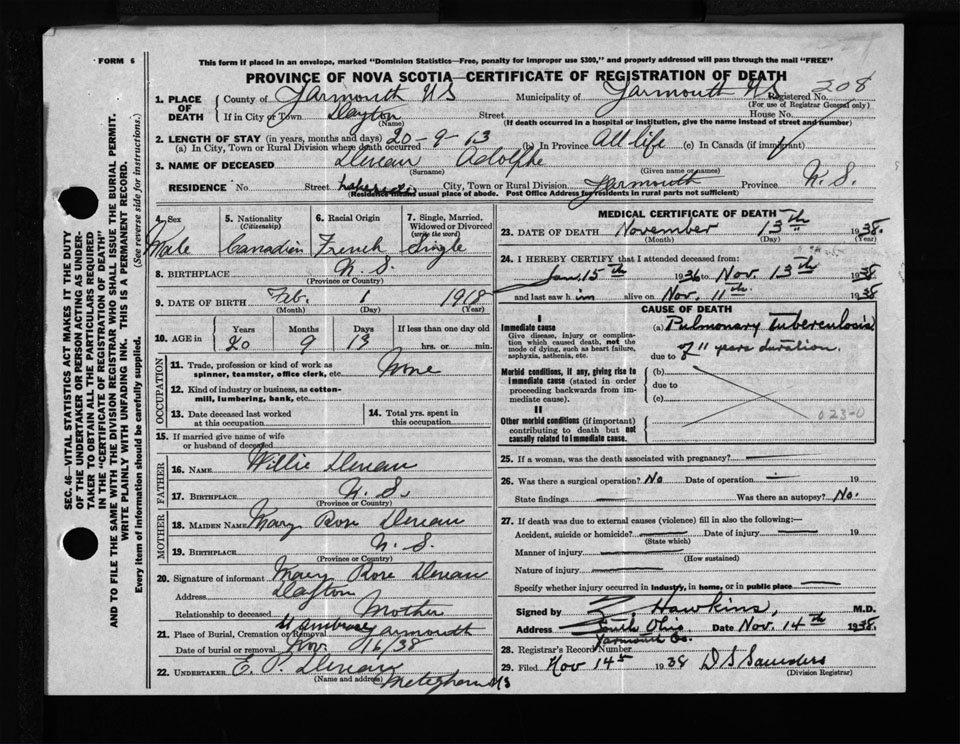 FORM 6
This form if placed in an envelope, marked "Dominion Statistics—Free, penalty for improper use $300," and properly addressed will pass through the mail "FREE"
PROVINCE OF NOVA SCOTIA—CERTIFICATE OF REGISTRATION OF DEATH
208
1. PLACE OF DEATH
County of Yarmouth NS Municipality of Yarmouth NS Registered No.
(For use of Registrar General only)
If in City or Town Dayton Street House No.
(Name) (If death occurred in a hospital or institution, give the name instead of street and number)
2. LENGTH OF STAY (in years, months and days) 20-9-13
(a) In City, Town or Rural Division where death occurred (b) In Province All life (c) In Canada (if immigrant)
3. NAME OF DECEASED Deveau Adolphe
(Surname) (Given name or names)
RESIDENCE No. Street City, Town or Rural Division Yarmouth Province N.S.
(Residence means usual place of abode. Post Office Address for residents in rural parts not sufficient)
4. Sex Male
5. Nationality (Citizenship) Canadian
6. Racial Origin French
7. Single, Married, Widowed or Divorced (write the word) Single
8. BIRTHPLACE N.S.
(Province or Country)
9. DATE OF BIRTH Feb. 1 1918
(Month) (Day) (Year)
10. AGE in Years Months Days If less than one day old
20 9 13 hrs. or min.
OCCUPATION
11. Trade, profession or kind of work as spinner, teamster, office clerk, etc. None
12. Kind of industry or business, as cotton-mill, lumbering, bank, etc.
13. Date deceased last worked at this occupation
14. Total yrs. spent in this occupation
15. If married give name of wife or husband of deceased
FATHER
16. NAME Willie Deveau
17. BIRTHPLACE N.S.
(Province or Country)
MOTHER
18. MAIDEN NAME Mary Rose Deveau
19. BIRTHPLACE N.S.
(Province or Country)
20. Signature of informant Mary Rose Deveau
Address Dayton
Relationship to deceased Mother
21. Place of Burial, Cremation or Removal St Ambrose Yarmouth
Date of burial or removal Nov. 16/38
22. UNDERTAKER E. P. Deveau
(Name and address) Meteghan NS
MEDICAL CERTIFICATE OF DEATH
23. DATE OF DEATH November 13th 1938
(Month) (Day) (Year)
24. I HEREBY CERTIFY that I attended deceased from:
Jan. 15th 1936 to Nov. 13th 1938
and last saw him alive on Nov. 11th 1938
CAUSE OF DEATH
I
Immediate cause
Give disease, injury or complication which caused death, not the mode of dying, such as heart failure, asphyxia, asthenia, etc.
(a) Pulmonary Tuberculosis
due to of 11 years duration.
Morbid conditions, if any, giving rise to immediate cause (stated in order proceeding backwards from immediate cause).
(b)
due to
(c)
II
Other morbid conditions (if important) contributing to death but not causally related to immediate cause.
023-0
25. If a woman, was the death associated with pregnancy?
26. Was there a surgical operation? No Date of operation — 19
State findings Was there an autopsy? No.
27. If death was due to external causes (violence) fill in also the following:—
Accident, suicide or homicide? Date of injury 19
(State which)
Manner of injury
(How sustained)
Nature of injury
Specify whether injury occurred in industry, in home, or in public place
Signed by Hawkins, M.D.
Address South Ohio Yarmouth Co. Date Nov. 14th 1938.
28. Registrar's Record Number
29. Filed Nov 14 1938 D S Saunders
(Division Registrar)
SEC. 46—VITAL STATISTICS ACT MAKES IT THE DUTY OF THE UNDERTAKER OR PERSON ACTING AS UNDERTAKER TO OBTAIN ALL THE PARTICULARS REQUIRED IN THE "CERTIFICATE OF REGISTRATION OF DEATH" AND TO FILE THE SAME WITH THE DIVISION REGISTRAR WHO SHALL ISSUE THE BURIAL PERMIT.
WRITE PLAINLY WITH UNFADING INK. THIS IS A PERMANENT RECORD.
Every item of information should be carefully supplied. (See reverse side for instructions.)